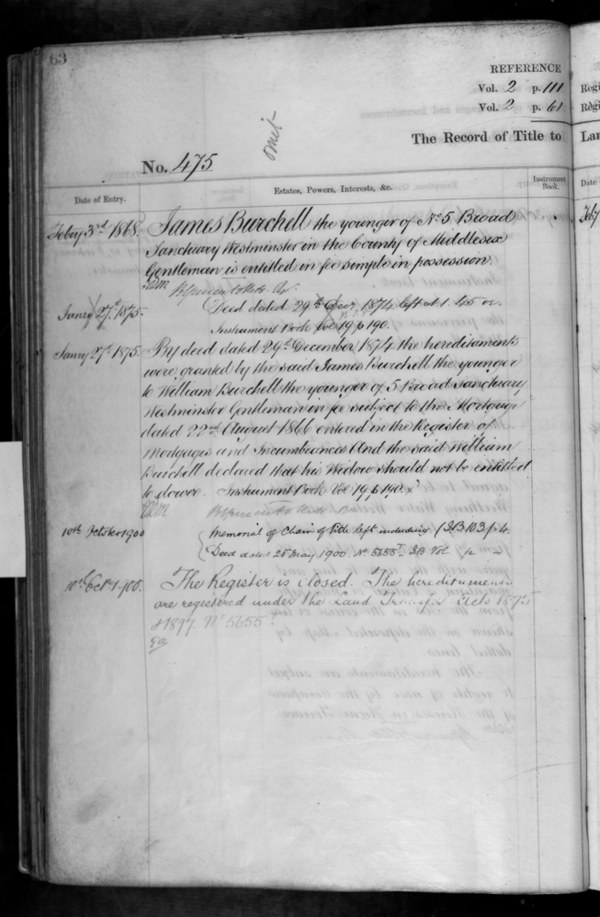 63
REFERENCE
Vol. 2 p. 111
Vol. 2 p. 61
omit
The Record of Title to
No. 475
Date of Entry.
Estates, Powers, Interests, &c.
Instrument Book.
Febry 3rd 1868.
James Burchell the younger of No 5 Broad
Sanctuary Westminster in the County of Middlesex
Gentleman is entitled in fee simple in possession.
Janry 27th 1875.
Deed dated 29th Decr. 1874 left at 1.45 on
Instrument Book Vol 19 p 190.
Janry 27th 1875.
By deed dated 29th December 1874 the hereditaments
were granted by the said James Burchell the younger
to William Burchell the younger of 5 Broad Sanctuary
Westminster Gentleman in fee subject to the Mortgage
dated 22nd August 1866 entered in the Register of
Mortgages and Incumbrances And the said William
Burchell declared that his Widow should not be entitled
to dower. Instrument Book Vol 19 p 190.
10th October 1900
Memorial of Chain of title left including
Deed dated 25 May 1900 No 5655 Vol p
10th Oct. 1900.
The Register is closed. The hereditaments
are registered under the Land Transfer Acts 1875
& 1897 No 5655
Regi
Regi
Lan
Date
Feby